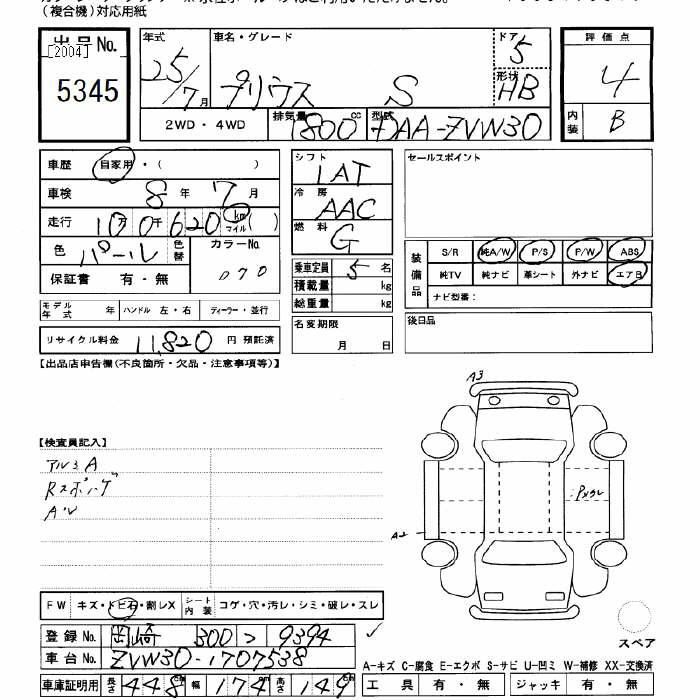 (複合機)対応用紙
出品No. [2004] 5345
年式 25/7月
車名・グレード プリウス S
ドア 5
形状 HB
評価点 4
内装 B
2WD・4WD
排気量 1800cc
型式 DAA-ZVW30
車歴 自家用・( )
車検 8年 7月
走行 10万0千620 km マイル ( )
色 パール 色替
カラーNo. 070
保証書 有・無
シフト IAT
冷房 AAC
燃料 G
乗車定員 5名
積載量 kg
総重量 kg
セールスポイント
装備品
S/R 純A/W P/S P/W ABS
純TV 純ナビ 革シート 外ナビ エアB
ナビ型番:
モデル年式 年 ハンドル 左・右 ディーラー・並行
名変期限 月 日
後日品
リサイクル料金 11,820 円 預託済
【出品店申告欄(不良箇所・欠品・注意事項等)】
A3
【検査員記入】
アルミA
Rスポイ
A2
FW キズ・トビ石・割レX
シート内装 コゲ・穴・汚レ・シミ・破レ・スレ
スペア
登録No. 岡崎 300 9394
車台No. ZVW30-1707538
A-キズ C-腐食 E-エクボ S-サビ U-凹ミ W-補修 XX-交換済
車庫証明用 長さ 448 幅 174 高さ 149
工具 有・無 ジャッキ 有・無